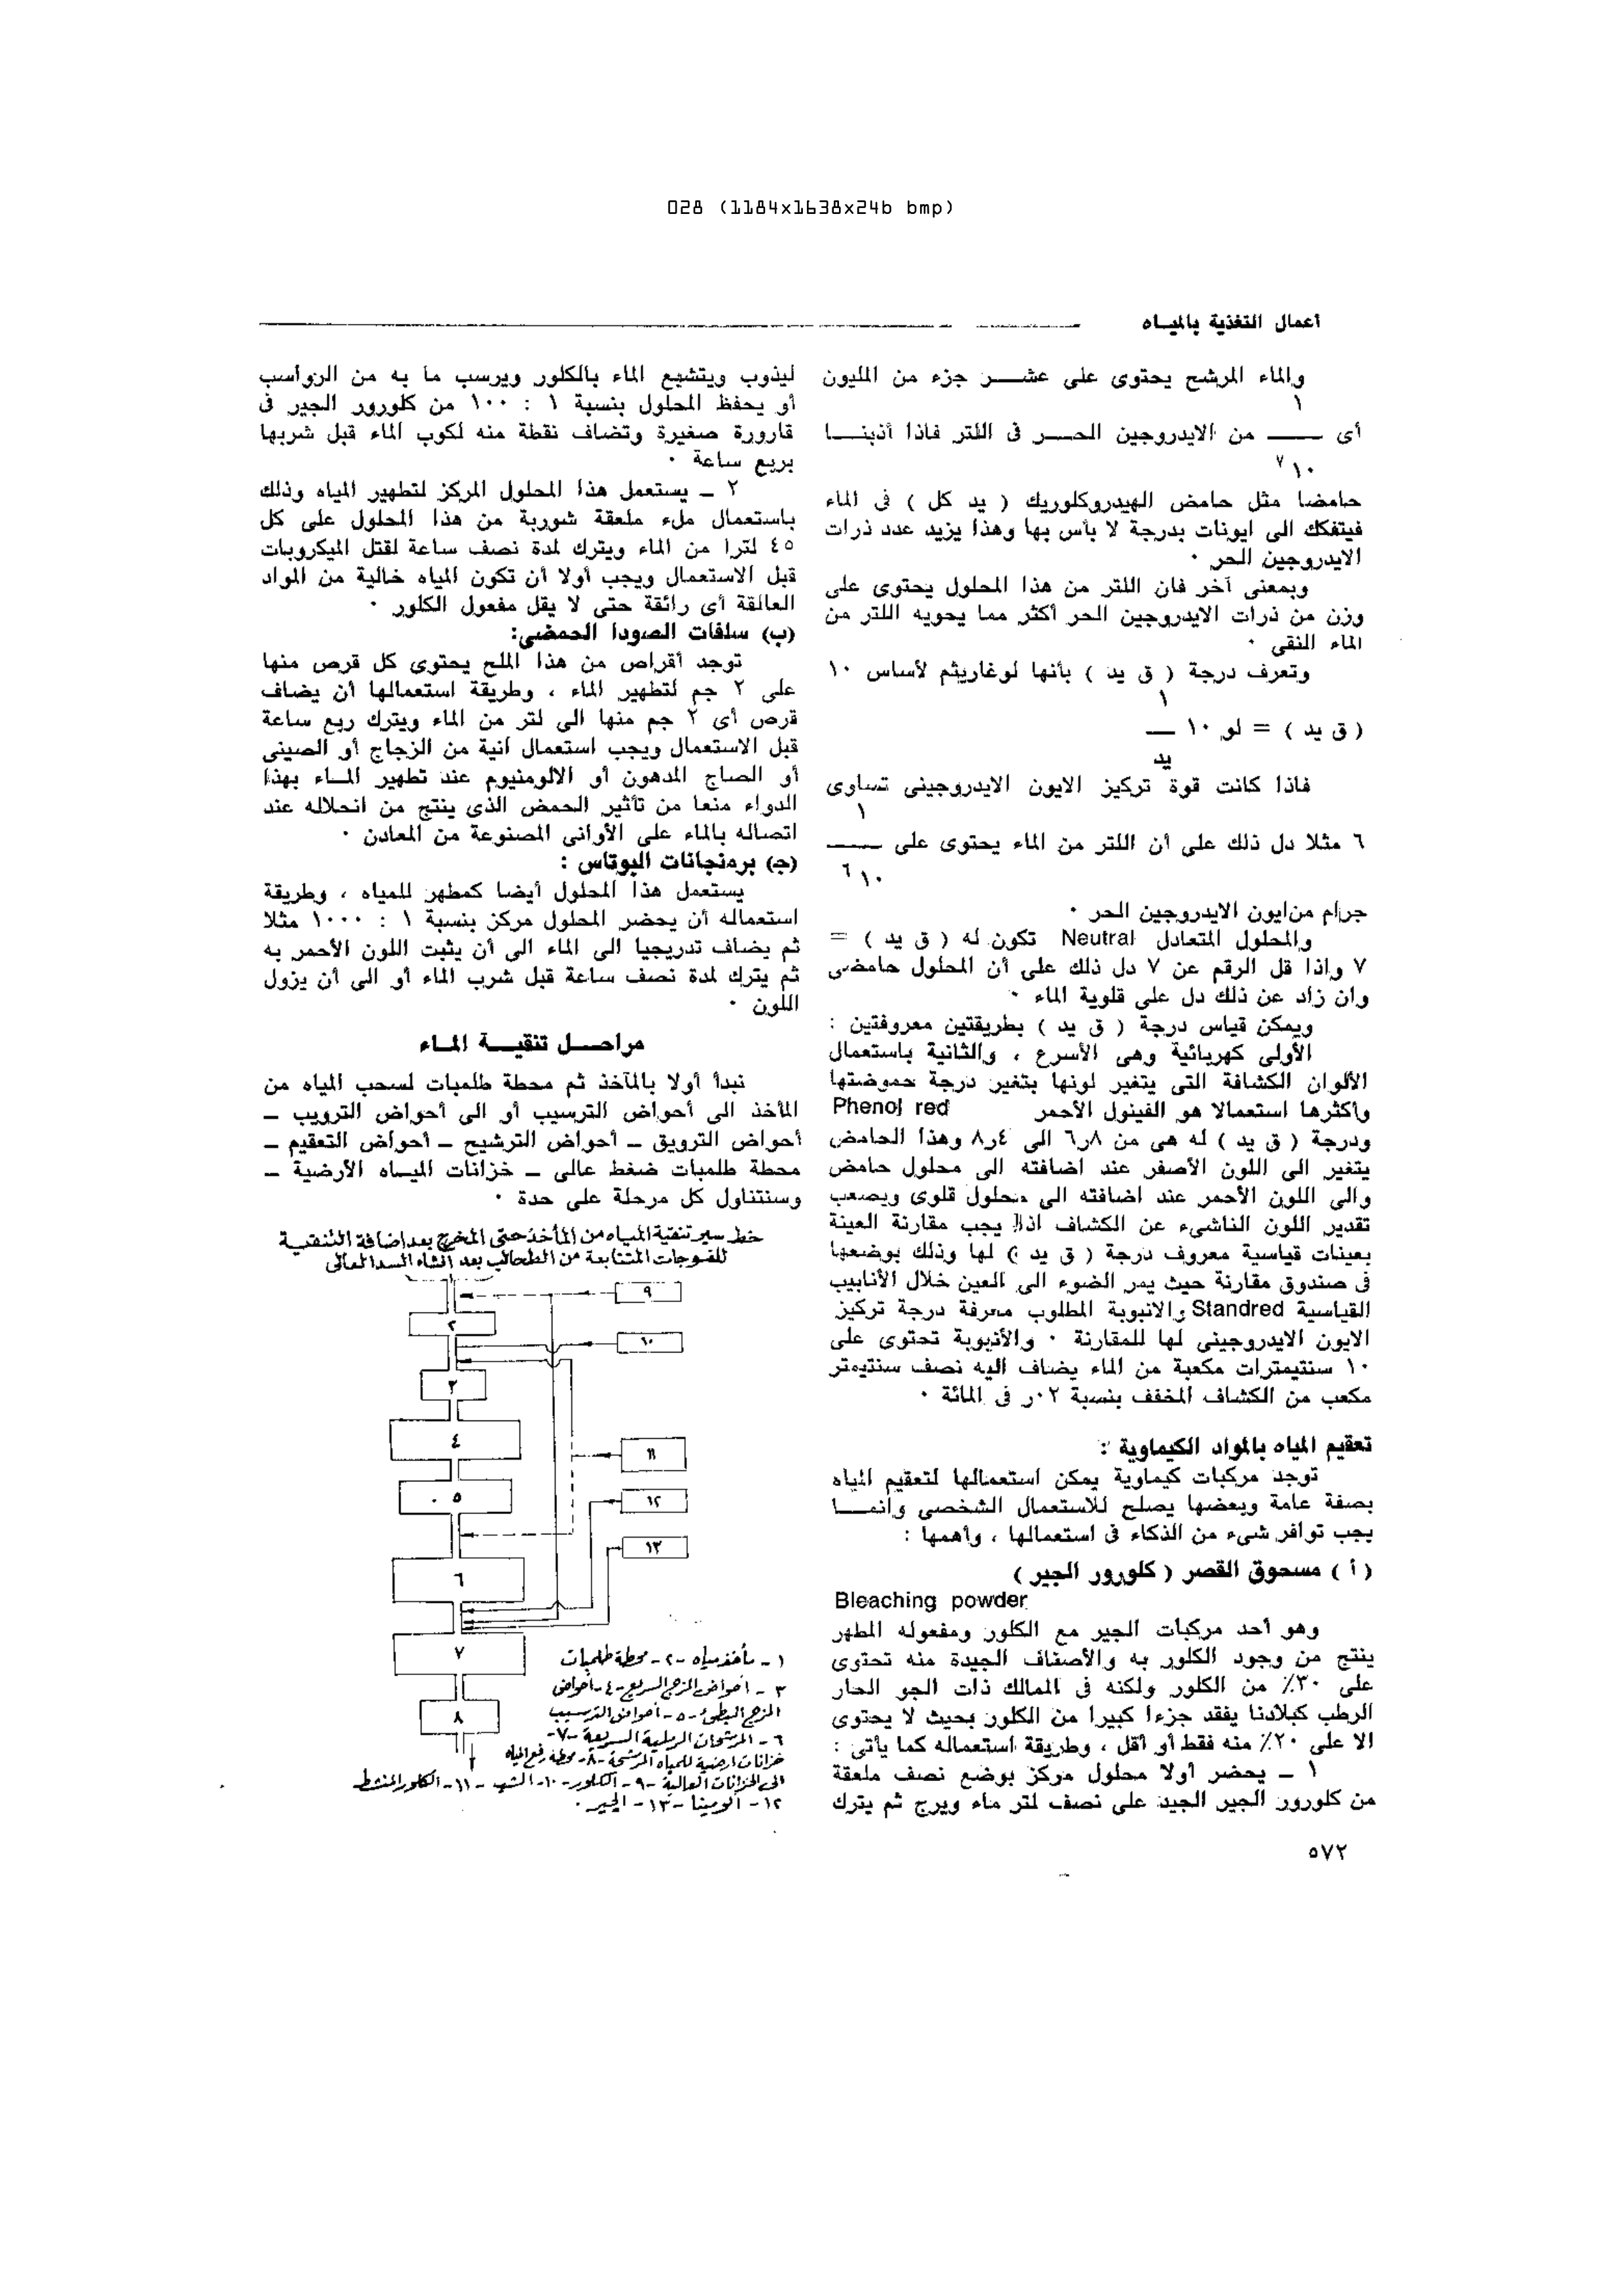 028 (1184x1638x24b bmp)
أعمال التغذية بالميـاه
والماء المرشح يحتوى على عشـــر جزء من المليون
١
أى ـــــ من الايدروجين الحـــر فى اللتر فاذا أذبنـــا
١٠ ٧
حامضا مثل حامض الهيدروكلوريك ( يد كل ) فى الماء
فيتفكك الى ايونات بدرجة لا بأس بها وهذا يزيد عدد ذرات
الايدروجين الحر ٠
وبمعنى آخر فان اللتر من هذا المحلول يحتوى على
وزن من ذرات الايدروجين الحر أكثر مما يحويه اللتر من
الماء النقى ٠
وتعرف درجة ( ق يد ) بأنها لوغاريثم لأساس ١٠
١
( ق يد ) = لو ١٠ ــــ
يد
فاذا كانت قوة تركيز الايون الايدروجينى تساوى
١
٦ مثلا دل ذلك على أن اللتر من الماء يحتوى على ـــــ
١٠ ٦
جرام من ايون الايدروجين الحر ٠
والمحلول المتعادل Neutral تكون له ( ق يد ) =
٧ واذا قل الرقم عن ٧ دل ذلك على أن المحلول حامضى
وان زاد عن ذلك دل على قلوية الماء ٠
ويمكن قياس درجة ( ق يد ) بطريقتين معروفتين :
الأولى كهربائية وهى الأسرع ، والثانية باستعمال
الألوان الكشافة التى يتغير لونها بتغير درجة حموضتها
وأكثرها استعمالا هو الفينول الأحمر Phenol red
ودرجة ( ق يد ) له هى من ٦٫٨ الى ٨٫٤ وهذا الحامض
يتغير الى اللون الأصفر عند اضافته الى محلول حامض
والى اللون الأحمر عند اضافته الى محلول قلوى ويصعب
تقدير اللون الناشىء عن الكشاف اذا يجب مقارنة العينة
بعينات قياسية معروف درجة ( ق يد ) لها وذلك بوضعها
فى صندوق مقارنة حيث يمر الضوء الى العين خلال الأنابيب
القياسية Standred والانبوبة المطلوب معرفة درجة تركيز
الايون الايدروجينى لها للمقارنة ٠ والأنبوبة تحتوى على
١٠ سنتيمترات مكعبة من الماء يضاف اليه نصف سنتيمتر
مكعب من الكشاف المخفف بنسبة ٠٢ر فى المائة ٠
تعقيم المياه بالمواد الكيماوية :
توجد مركبات كيماوية يمكن استعمالها لتعقيم المياه
بصفة عامة وبعضها يصلح للاستعمال الشخصى وانمـــا
يجب توافر شىء من الذكاء فى استعمالها ، وأهمها :
( أ ) مسحوق القصر ( كلورور الجير )
Bleaching powder
وهو أحد مركبات الجير مع الكلور ومفعوله المطهر
ينتج من وجود الكلور به والأصناف الجيدة منه تحتوى
على ٣٠٪ من الكلور ولكنه فى الممالك ذات الجو الحار
الرطب كبلادنا يفقد جزءا كبيرا من الكلور بحيث لا يحتوى
الا على ٢٠٪ منه فقط أو أقل ، وطريقة استعماله كما يأتى :
١ ــ يحضر أولا محلول مركز بوضع نصف ملعقة
من كلورور الجير الجيد على نصف لتر ماء ويرج ثم يترك
ليذوب ويتشبع الماء بالكلور ويرسب ما به من الرواسب
أو يحفظ المحلول بنسبة ١ : ١٠٠ من كلورور الجير فى
قارورة صغيرة وتضاف نقطة منه لكوب الماء قبل شربها
بربع ساعة ٠
٢ ــ يستعمل هذا المحلول المركز لتطهير المياه وذلك
باستعمال ملء ملعقة شوربة من هذا المحلول على كل
٤٥ لترا من الماء ويترك لمدة نصف ساعة لقتل الميكروبات
قبل الاستعمال ويجب أولا أن تكون المياه خالية من المواد
العالقة أى رائقة حتى لا يقل مفعول الكلور ٠
(ب) سلفات الصودا الحمضى:
توجد أقراص من هذا الملح يحتوى كل قرص منها
على ٢ جم لتطهير الماء ، وطريقة استعمالها أن يضاف
قرص أى ٢ جم منها الى لتر من الماء ويترك ربع ساعة
قبل الاستعمال ويجب استعمال آنية من الزجاج أو الصينى
أو الصاج المدهون أو الالومنيوم عند تطهير المـاء بهذا
الدواء منعا من تأثير الحمض الذى ينتج من انحلاله عند
اتصاله بالماء على الأوانى المصنوعة من المعادن ٠
(ج) برمنجانات البوتاس :
يستعمل هذا المحلول أيضا كمطهر للمياه ، وطريقة
استعماله أن يحضر المحلول مركز بنسبة ١ : ١٠٠٠ مثلا
ثم يضاف تدريجيا الى الماء الى أن يثبت اللون الأحمر به
ثم يترك لمدة نصف ساعة قبل شرب الماء أو الى أن يزول
اللون ٠
مراحـــل تنقيـــة المـاء
نبدأ أولا بالمآخذ ثم محطة طلمبات لسحب المياه من
المأخذ الى أحواض الترسيب أو الى أحواض الترويب ــ
أحواض الترويق ــ أحواض الترشيح ــ أحواض التعقيم ــ
محطة طلمبات ضغط عالى ــ خزانات الميـاه الأرضية ــ
وسنتناول كل مرحلة على حدة ٠
خط سير تنقية المياه من المأخذ حتى المخرج بعد اضافة التنقية
للفوجات المتتابعة من الطحالب بعد انشاء السد العالى
٩
٢
١٠
٣
٤
١١
٥
١٢
١٣
٦
٧
٨
١ - مأخذ مياه - ٢ - محطة طلمبات
٣ - أحواض المزج السريع - ٤ - أحواض
المزج البطئ - ٥ - أحواض الترسيب
٦ - المرشحات الرملية السريعة - ٧ -
خزانات ارضية للمياه المرشحة - ٨ - محطة رفع المياه
الى الخزانات العالية - ٩ - الكلور - ١٠ - الشب - ١١ - الكلور المنشط
١٢ - ألومينا - ١٣ - الجير ٠
٥٧٢